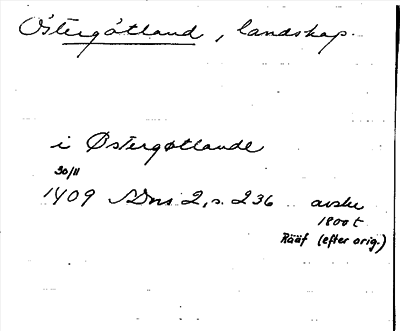 Östergötland, landskap.
i Østergøtlande
30/11
1409 SDns 2, s. 236 avskr
1800 t
Rääf (efter orig.)